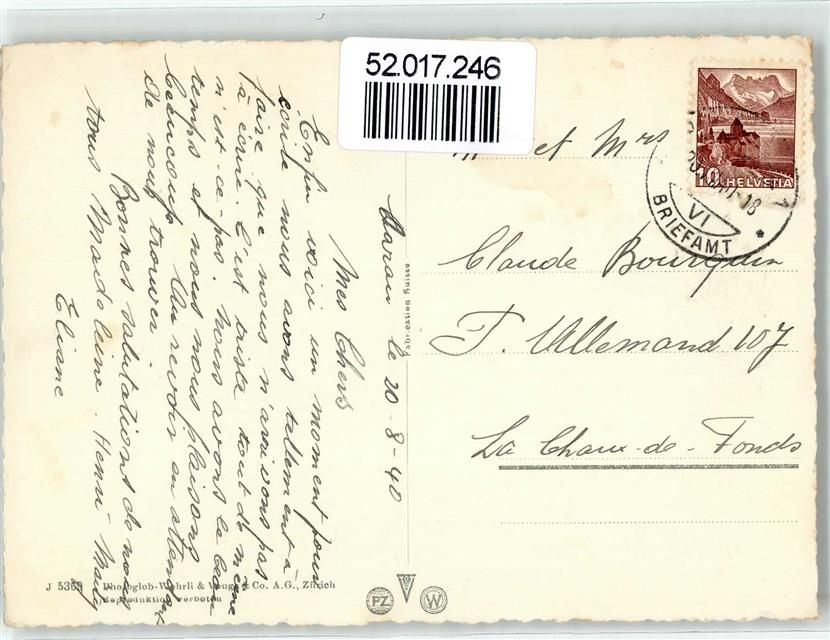 52.017.246
et Mrs
Claude Bourquin
P. Allemand 107
La Chaux-de-Fonds
10 HELVETIA
VI
BRIEFAMT
18
Fabrication Suisse
Aarau le 20-8-40
Mes Chers
Enfin voici un moment pour
écrire nous avons tellement à
faire que nous n'avisons pas
à écrire. C'est triste tout de même
n'est-ce-pas. Nous avons le beau
temps et nous nous plaisons
beaucoup. Au revoir en attendant
de nous trouver.
Bonnes salutations de nous
tous Madeleine. Henri-
Eliane
J 5363 Photoglob-Wehrli & Vouga & Co. A.G., Zürich
Reproduktion verboten
PZ
W